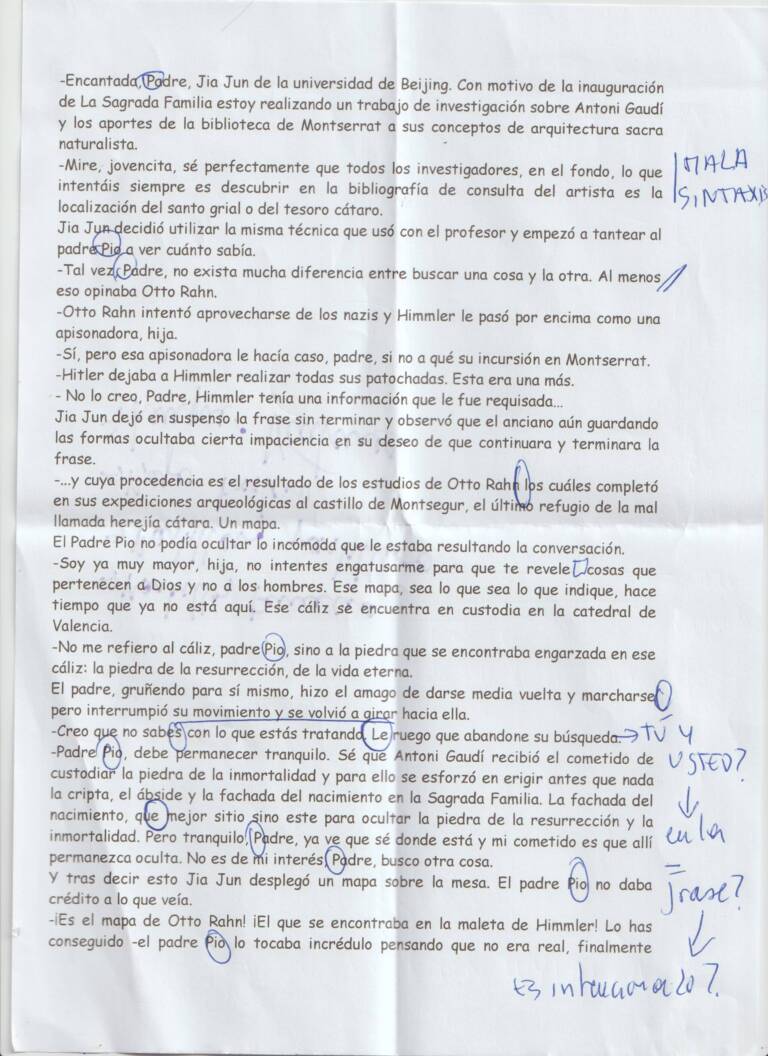 -Encantada, Padre, Jia Jun de la universidad de Beijing. Con motivo de la inauguración
de La Sagrada Familia estoy realizando un trabajo de investigación sobre Antoni Gaudí
y los aportes de la biblioteca de Montserrat a sus conceptos de arquitectura sacra
naturalista.
-Mire, jovencita, sé perfectamente que todos los investigadores, en el fondo, lo que
intentáis siempre es descubrir en la bibliografía de consulta del artista es la
localización del santo grial o del tesoro cátaro.
MALA
SINTAXIS
Jia Jun decidió utilizar la misma técnica que usó con el profesor y empezó a tantear al
padre Pio a ver cuánto sabía.
-Tal vez, Padre, no exista mucha diferencia entre buscar una cosa y la otra. Al menos
eso opinaba Otto Rahn.
-Otto Rahn intentó aprovecharse de los nazis y Himmler le pasó por encima como una
apisonadora, hija.
-Sí, pero esa apisonadora le hacía caso, padre, si no a qué su incursión en Montserrat.
-Hitler dejaba a Himmler realizar todas sus patochadas. Esta era una más.
- No lo creo, Padre, Himmler tenía una información que le fue requisada...
Jia Jun dejó en suspenso la frase sin terminar y observó que el anciano aún guardando
las formas ocultaba cierta impaciencia en su deseo de que continuara y terminara la
frase.
-...y cuya procedencia es el resultado de los estudios de Otto Rahn los cuáles completó
en sus expediciones arqueológicas al castillo de Montsegur, el último refugio de la mal
llamada herejía cátara. Un mapa.
El Padre Pio no podía ocultar lo incómoda que le estaba resultando la conversación.
-Soy ya muy mayor, hija, no intentes engatusarme para que te revele cosas que
pertenecen a Dios y no a los hombres. Ese mapa, sea lo que sea lo que indique, hace
tiempo que ya no está aquí. Ese cáliz se encuentra en custodia en la catedral de
Valencia.
-No me refiero al cáliz, padre Pio, sino a la piedra que se encontraba engarzada en ese
cáliz: la piedra de la resurrección, de la vida eterna.
El padre, gruñendo para sí mismo, hizo el amago de darse media vuelta y marcharse
pero interrumpió su movimiento y se volvió a girar hacia ella.
-Creo que no sabes con lo que estás tratando. Le ruego que abandone su búsqueda.
-Padre Pio, debe permanecer tranquilo. Sé que Antoni Gaudí recibió el cometido de
custodiar la piedra de la inmortalidad y para ello se esforzó en erigir antes que nada
la cripta, el ábside y la fachada del nacimiento en la Sagrada Familia. La fachada del
nacimiento, que mejor sitio sino este para ocultar la piedra de la resurrección y la
inmortalidad. Pero tranquilo, Padre, ya ve que sé donde está y mi cometido es que allí
permanezca oculta. No es de mi interés, Padre, busco otra cosa.
Y tras decir esto Jia Jun desplegó un mapa sobre la mesa. El padre Pio no daba
crédito a lo que veía.
-¡Es el mapa de Otto Rahn! ¡El que se encontraba en la maleta de Himmler! Lo has
conseguido -el padre Pio lo tocaba incrédulo pensando que no era real, finalmente
→ TÚ Y
USTED?
en la
frase?
Es intencionado?